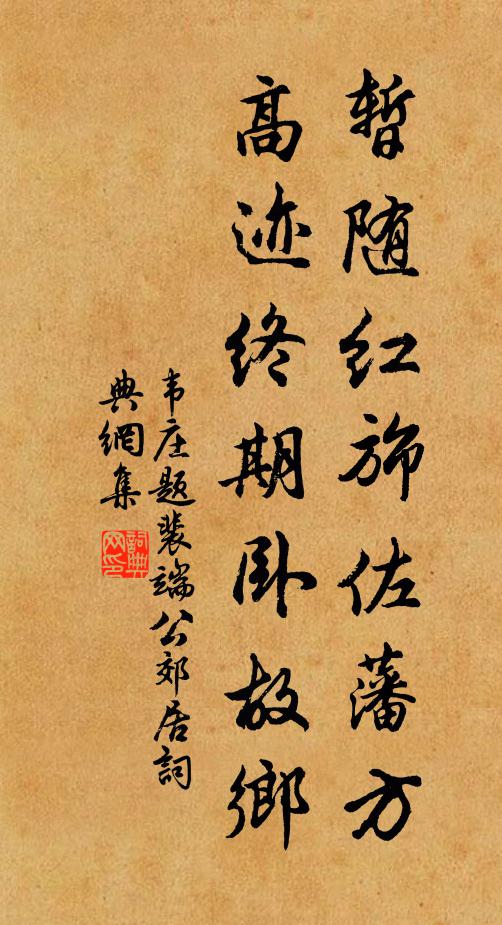 暂随红旆佐藩方
高迹终期卧故鄉
韦庄题裴端公郊居詞
典網集
詞典
网印